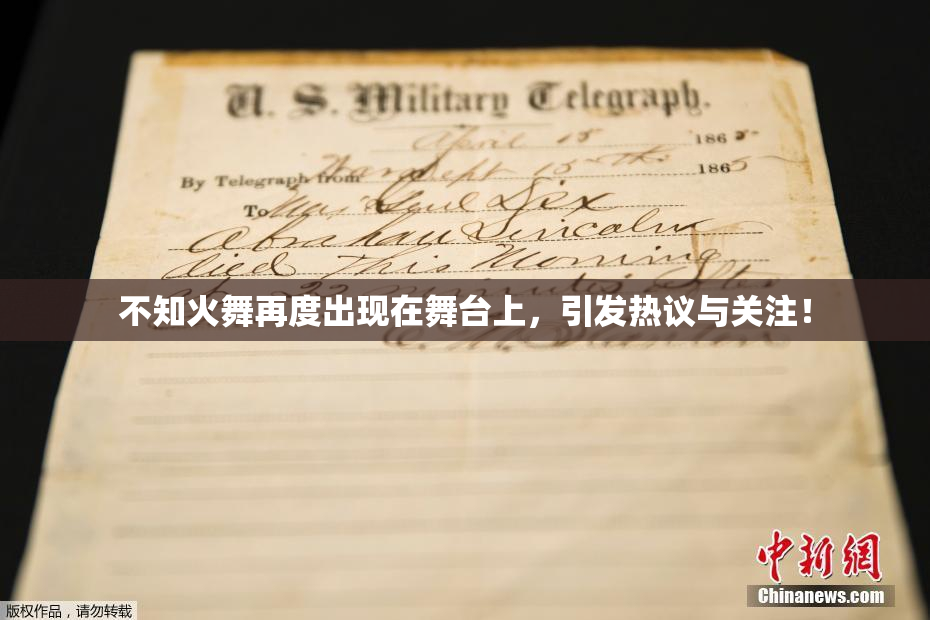 U. S. Military Telegraph.
April 15 1865
By Telegraph from War Dept 15th 1865
To Maj Genl Dix
Abraham Lincoln
died This Morning
at 22 minutes after
不知火舞再度出现在舞台上，引发热议与关注！
中新網
Chinanews.com
版权作品，请勿转载